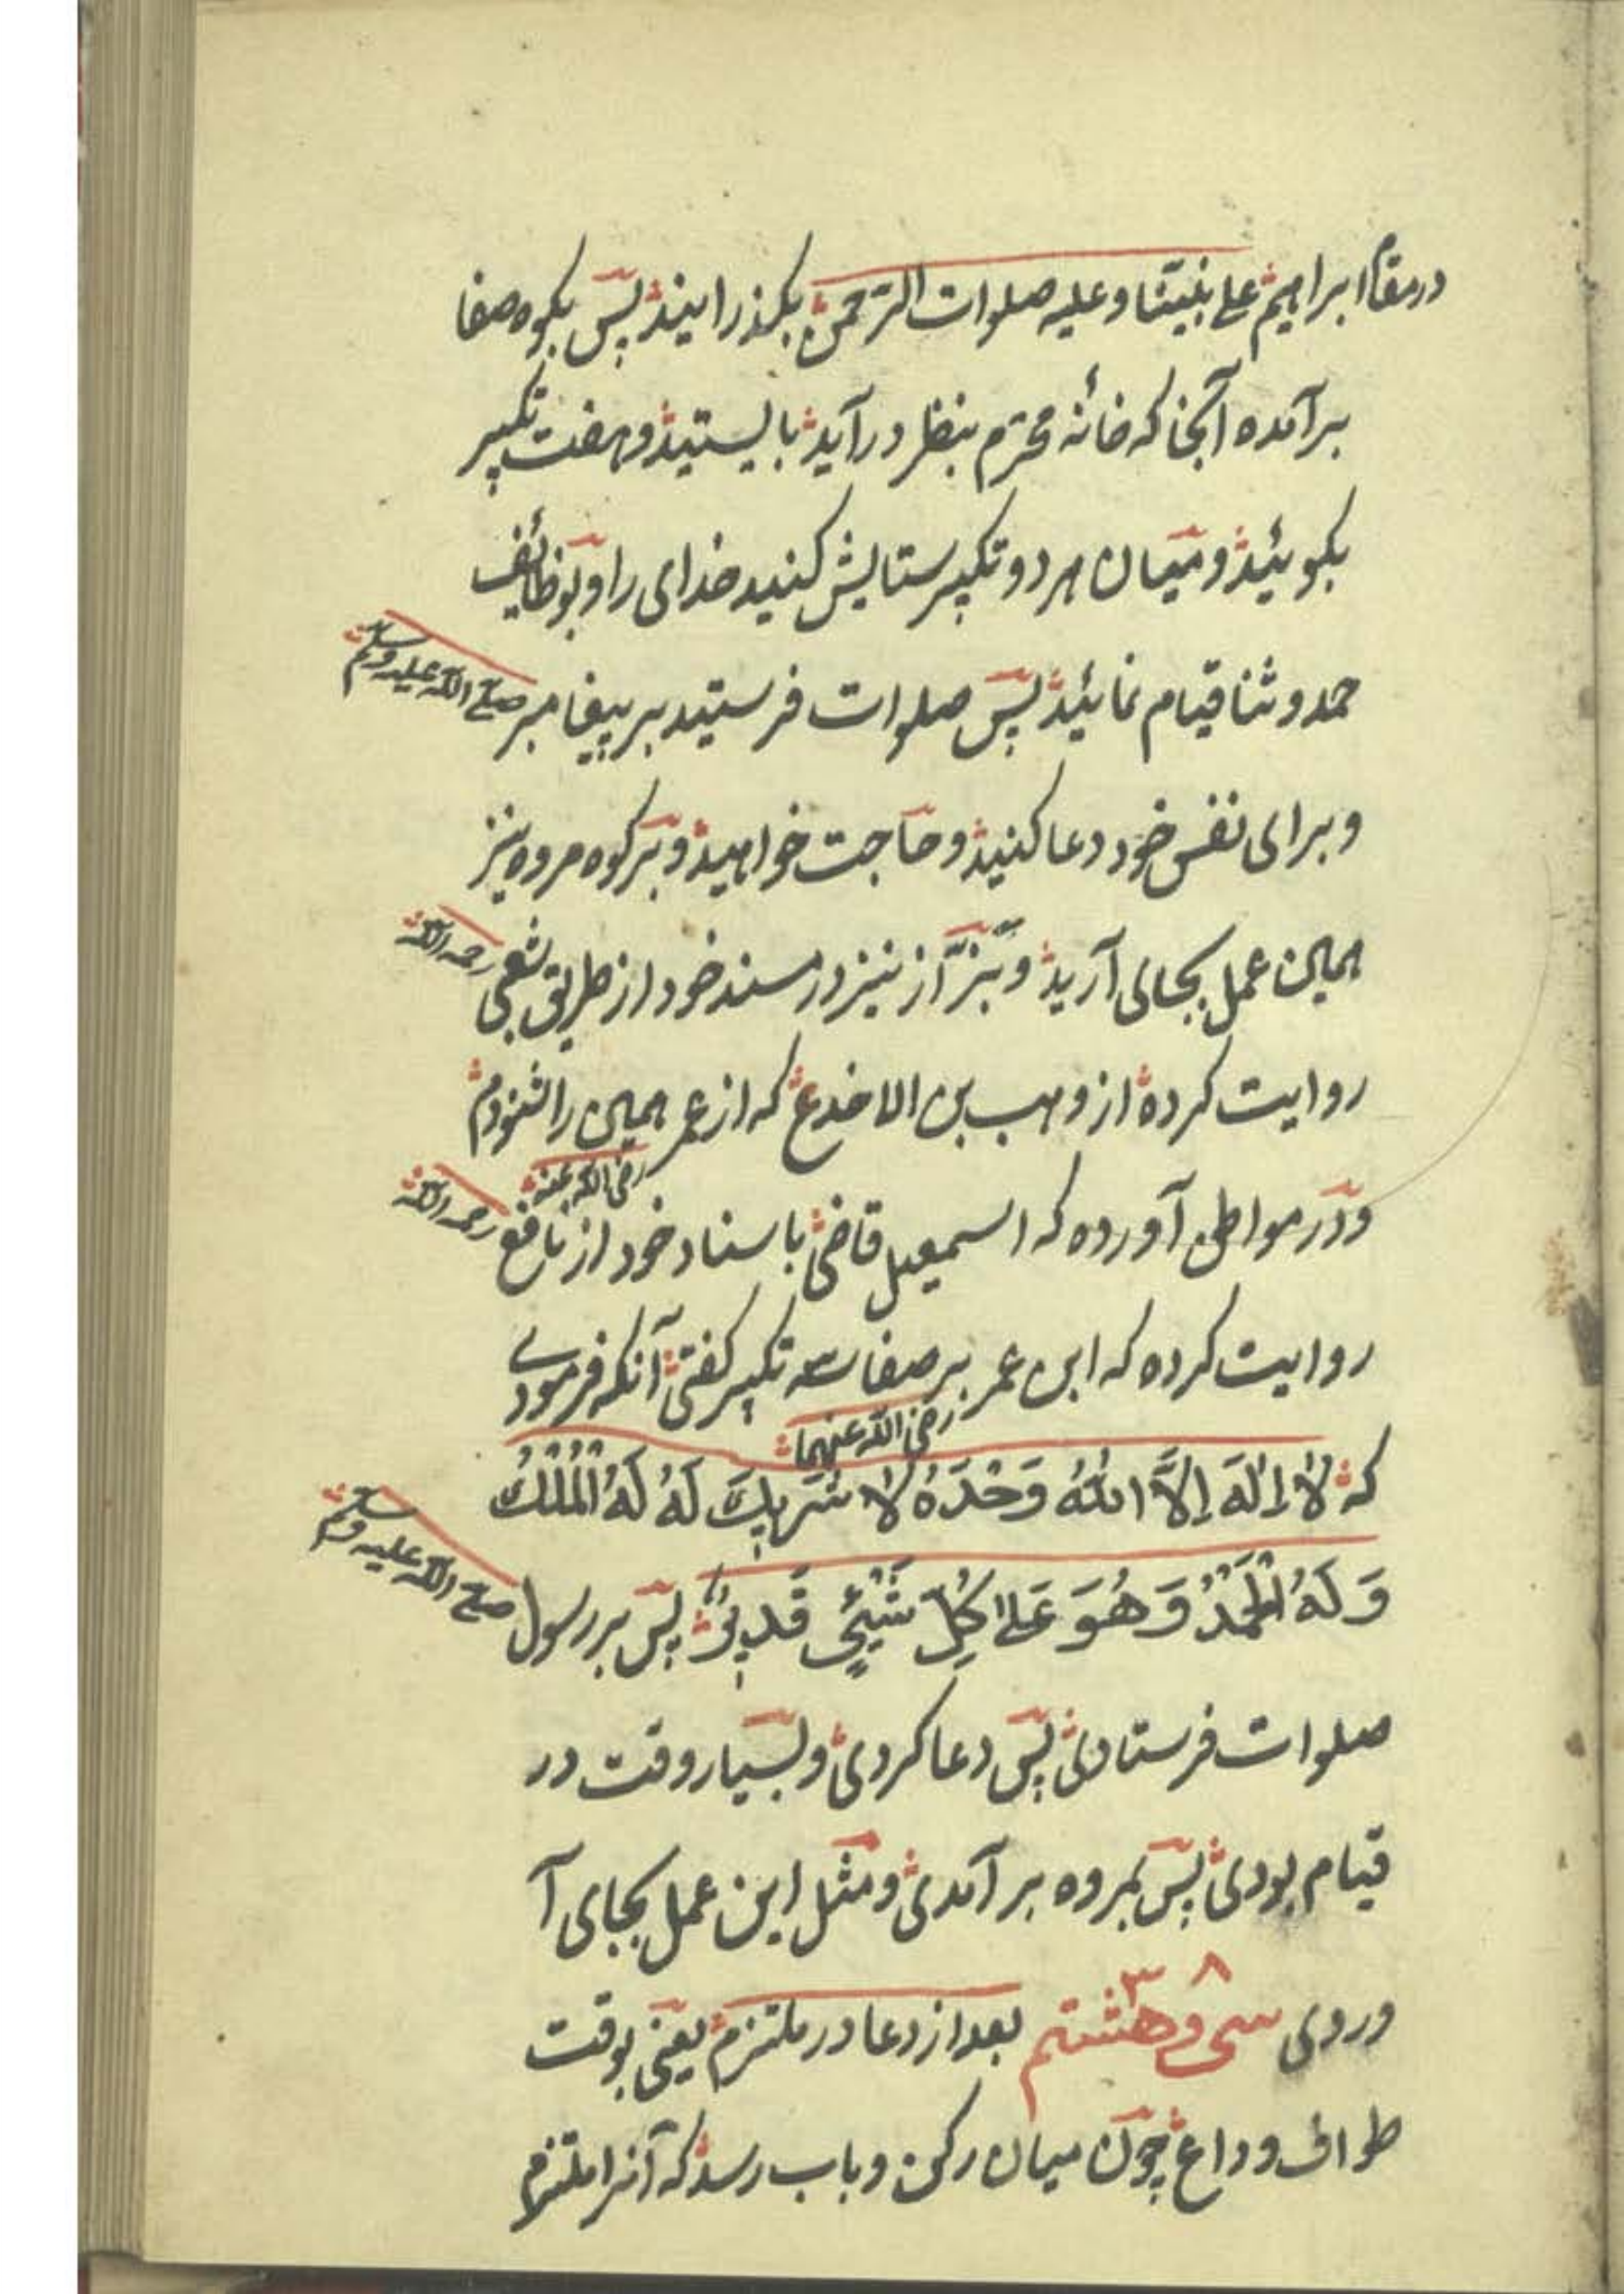 در مقام ابراهیم علی نبینا و علیه صلوات الرحمن بکذرانید پس بکوه صفا
برآمده آنجا که خانهٔ محترم بنظر درآید بایستید و هفت تکبیر
بکوئید و میان هر دو تکبیر ستایش کنید خدای را و بوظائف
حمد و ثنا قیام نمائید پس صلوات فرستید بر پیغامبر صلی الله علیه وسلم
و برای نفس خود دعا کنید و حاجت خواهید و بر کوه مروه نیز
همین عمل بجای آرید و بزّاز نیز در مسند خود از طریق شعبی رحمه الله
روایت کرده از وهب بن الاخدع که از عمر رضی الله عنه همین را شنودم
و در مواطن آورده که اسمعیل قاضی باسناد خود از نافع رحمه الله
روایت کرده که ابن عمر رضی الله عنهما بر صفا سه تکبیر کفتی آنکه فرمودے
که لَا إِلٰهَ إِلَّا اللهُ وَحْدَهُ لَا شَرِيكَ لَهُ لَهُ الْمُلْكُ
وَلَهُ الْحَمْدُ وَهُوَ عَلىٰ كُلِّ شَيْئٍ قَدِيرٌ پس بر رسول صلی الله علیه وسلم
صلوات فرستادی پس دعا کردی و بسیار وقت در
قیام بودی پس بمروه برآمدی و مثل این عمل بجای آ
وردی سی و هشتم ۳۸ بعد از دعا در ملتزم یعنی بوقت
طواف وداع چون میان رکن و باب رسد که آنرا ملتزم